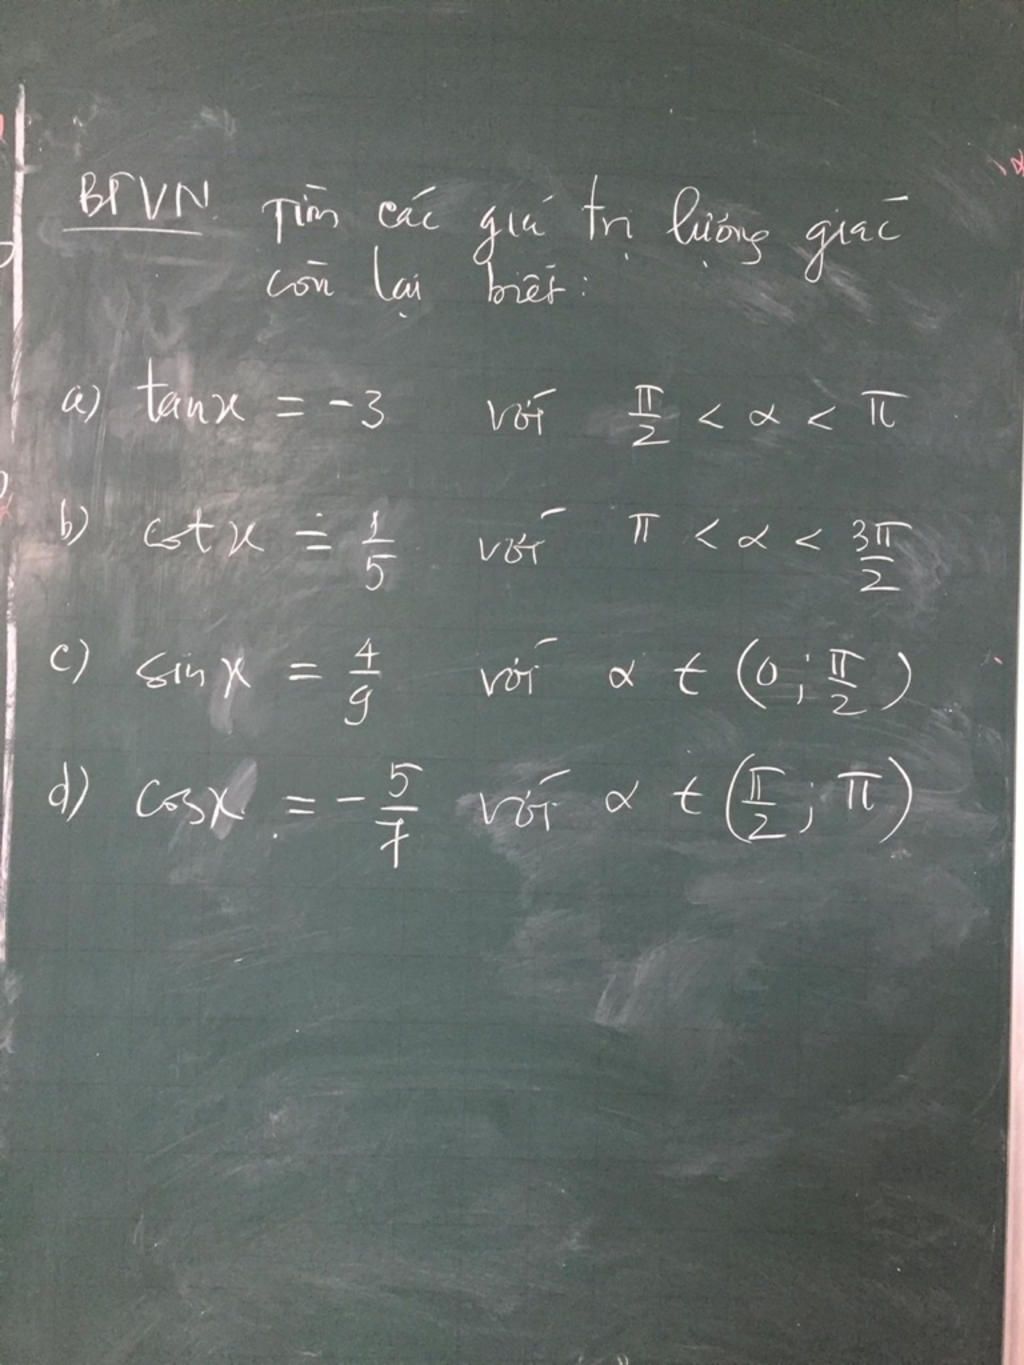 BTVN. Tìm các giá trị lượng giác
còn lại biết:
a) tanx = -3 với π/2 < α < π
b) cotx = 1/5 với π < α < 3π/2
c) sinx = 4/9 với α ∈ (0; π/2)
d) cosx = -5/7 với α ∈ (π/2; π)